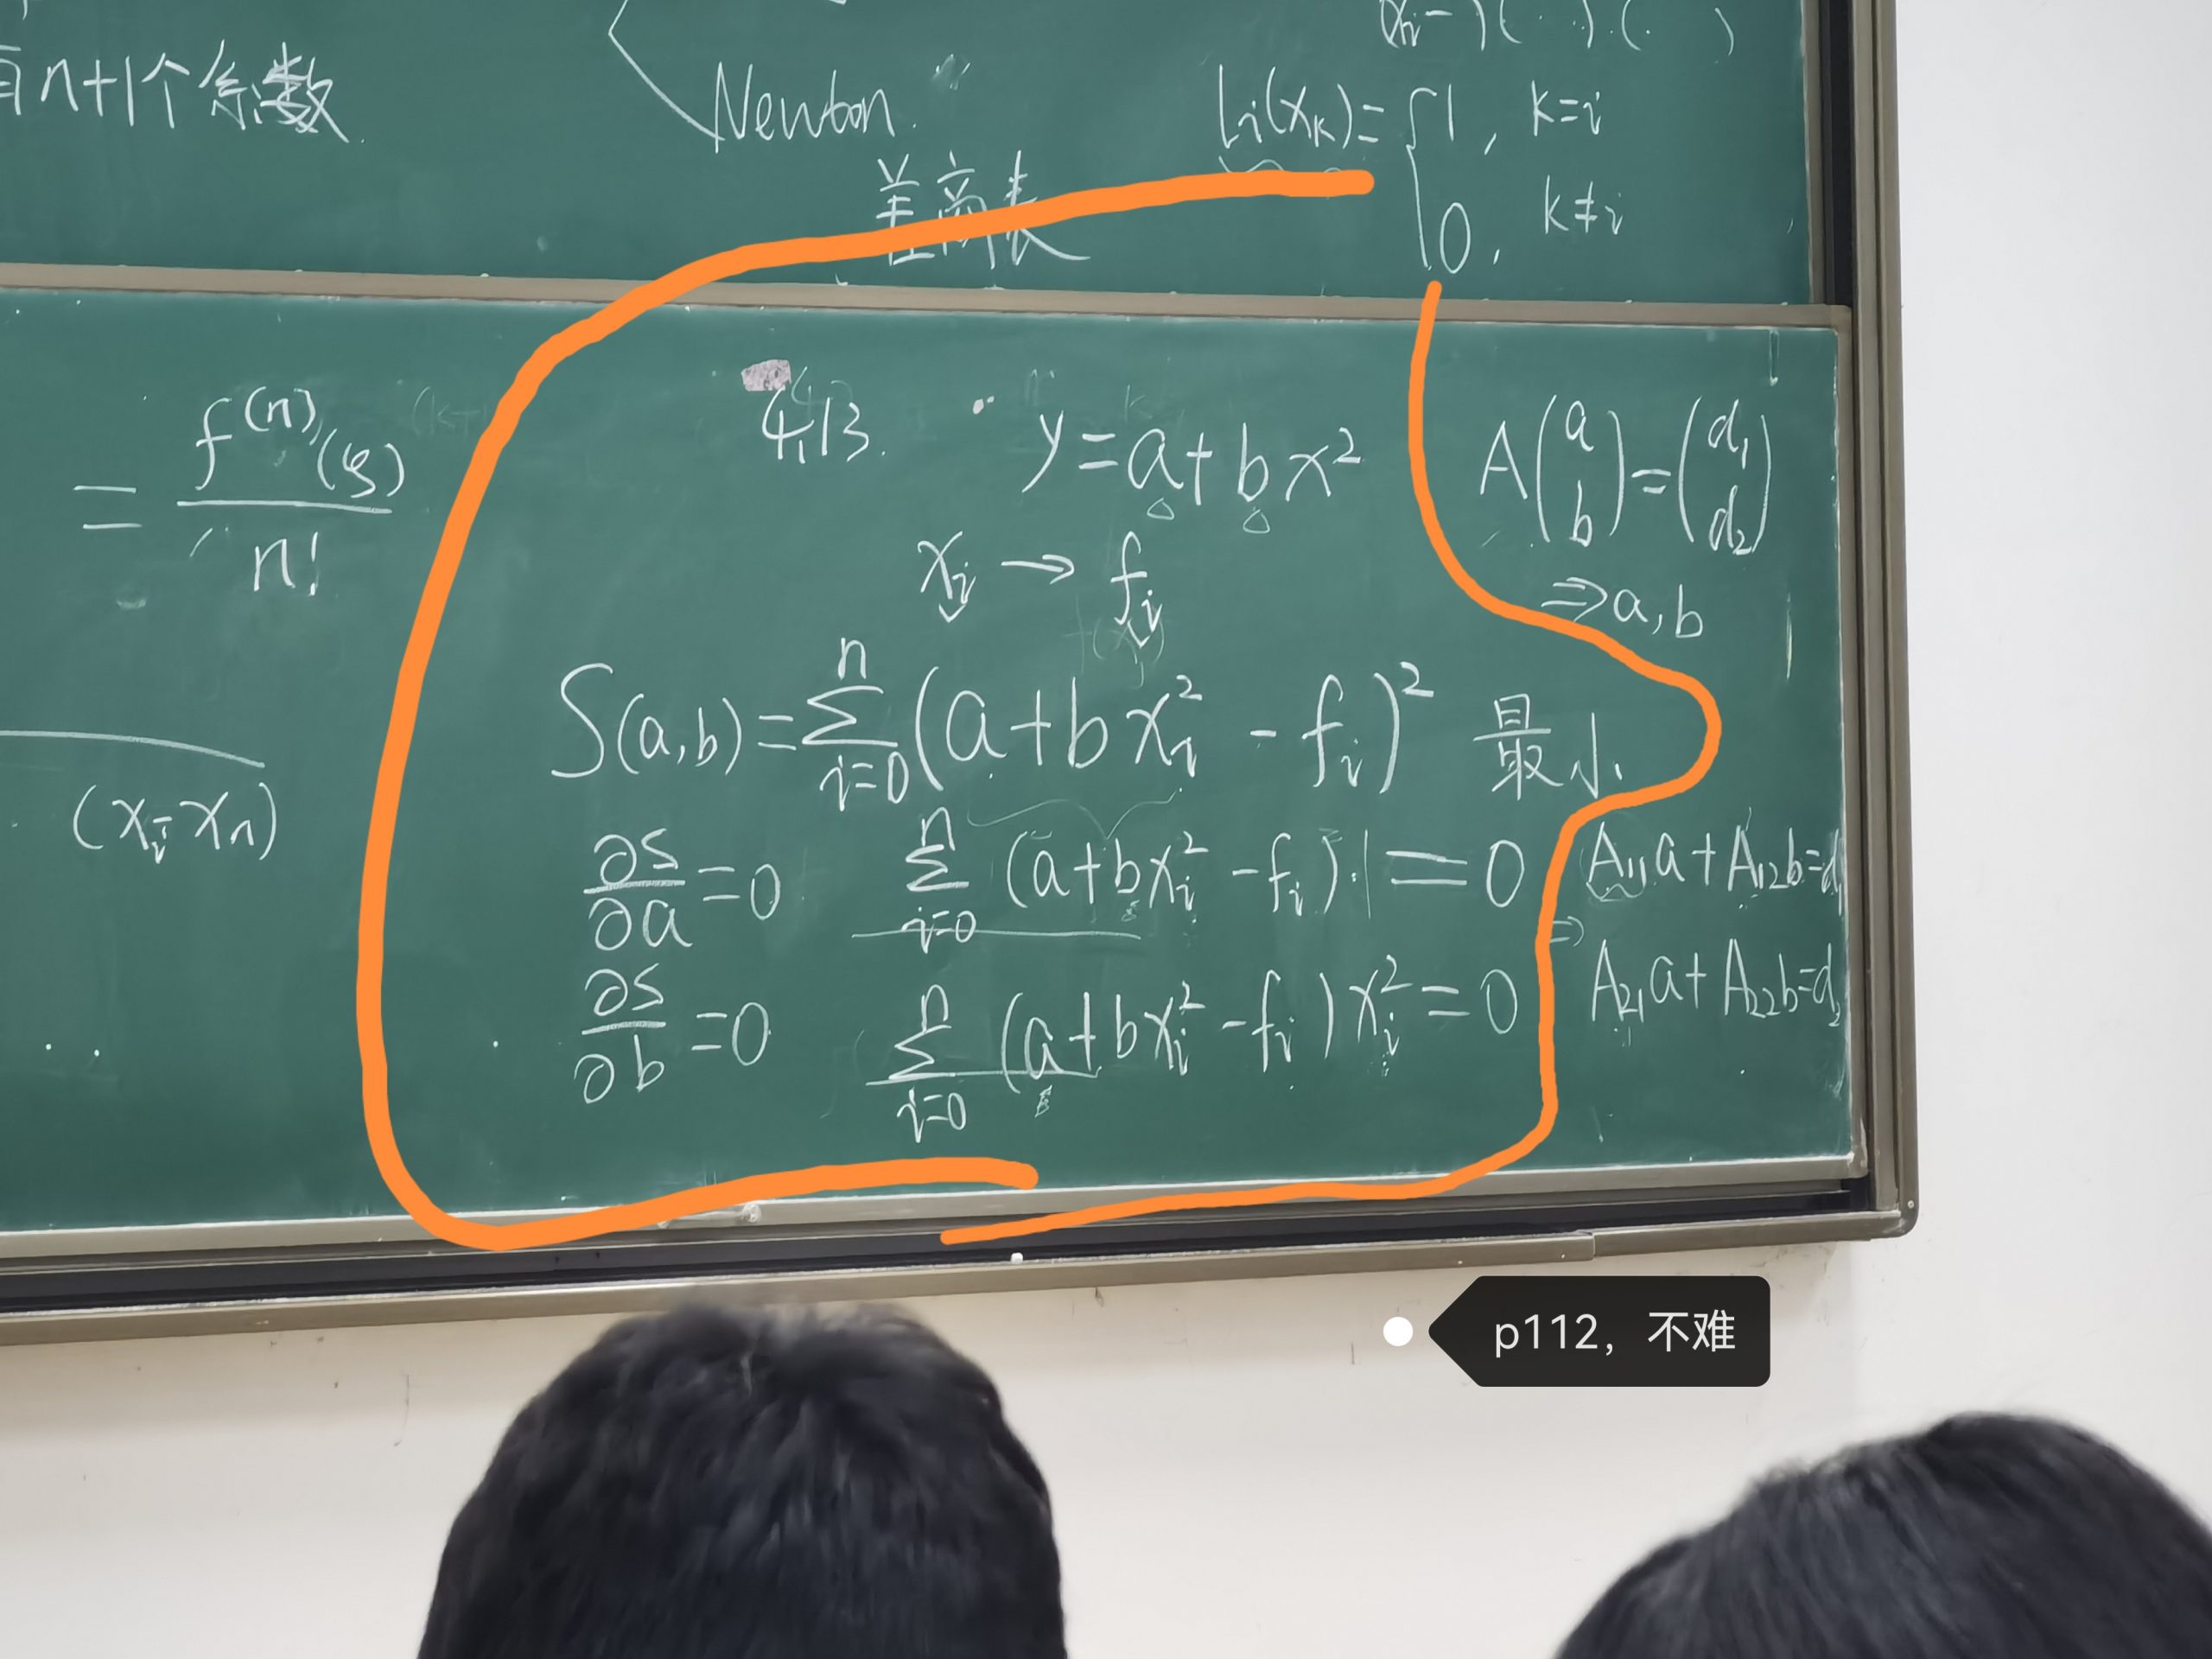 n+1个系数
Newton
差商表
(xi-)( · · )·( · )
li(xk)= { 1, k=i
0, k≠i
= f⁽ⁿ⁾(ξ) / n!
(xi-xn)
4.13. y=a+bx²
xi → fi
S(a,b)=∑ⁿᵢ₌₀(a+bxi²-fi)² 最小
∂S/∂a=0 ∑ⁿᵢ₌₀(a+bxi²-fi)·1=0
∂S/∂b=0 ∑ⁿᵢ₌₀(a+bxi²-fi)xi²=0
A(a b)=(d₁ d₂)
⇒a,b
A₁₁a+A₁₂b=d₁
⇒
A₂₁a+A₂₂b=d₂
p112，不难